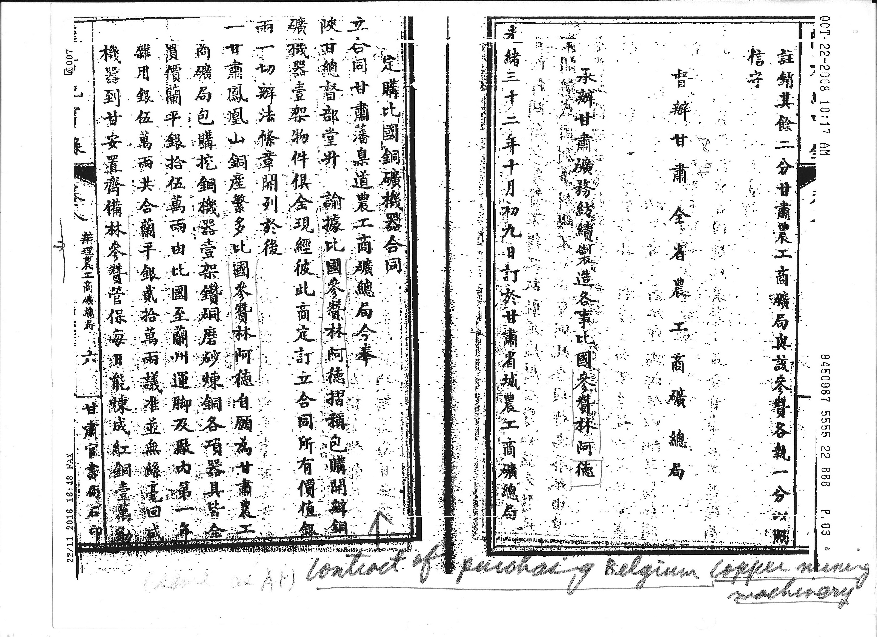 註銷其餘二分甘肅農工商礦局與該參贊各執一分以昭
信守
督辦甘肅全省農工商礦總局
承辦甘肅礦務紡績製造各事比國參贊林阿德
光緒三十二年十月初九日訂於甘肅省城農工商礦總局
定購比國銅礦機器合同
立合同甘肅藩臬道農工商礦總局今奉
陝甘總督部堂升 諭據比國參贊林阿德摺稱包購開辦銅
礦機器壹架物件俱全現經彼此商定訂立合同所有價值銀
兩一切辦法條章開列於後
一甘肅鳳凰山銅產業多比國參贊林阿德自願為甘肅農工
商礦局包購挖銅機器壹架鑽硐磨砂煉銅各項器具皆全
價蘭平銀拾伍萬兩由比國至蘭州運腳及廠內第一年
雜用銀伍萬兩共合蘭平銀貳拾萬兩議准並無絲毫回減
機器到甘安置齊備林參贊管保每日能煉成紅銅壹萬
蘭理農工商礦總局 六 甘肅官書局石印
OCT-22-2008 10:17 AM
P.03
22/11 2016 16:48 FAX
007
contract of purchasing Belgium copper mining
machinery